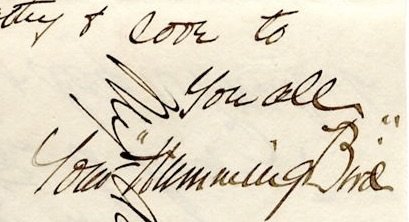 & love to
You all
Your "Humming Bird"